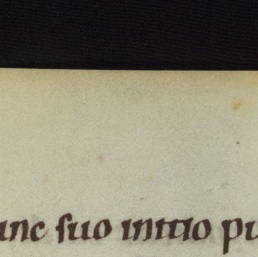 unc suo initio pu